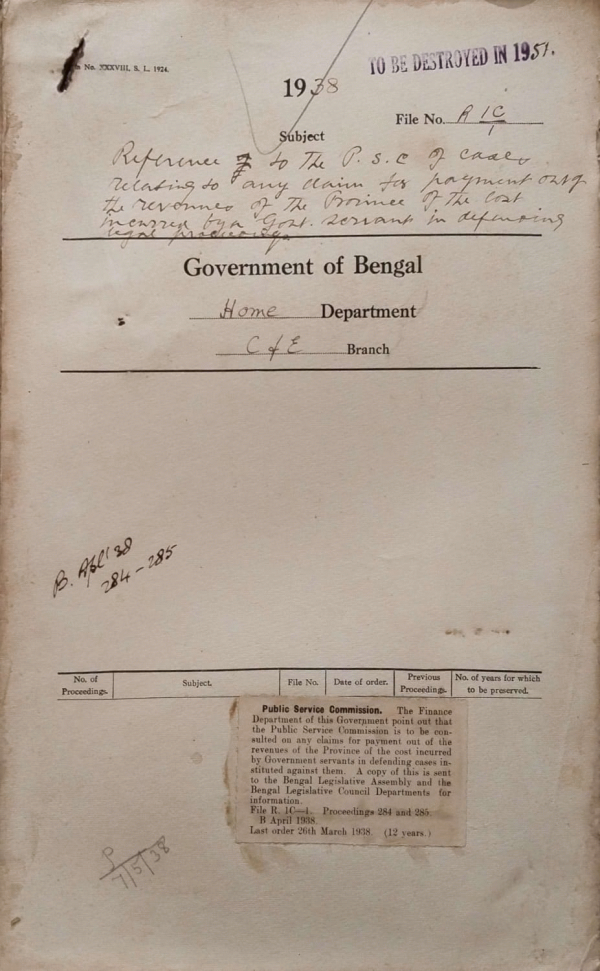 No. XXXVIII, S. L., 1924.
TO BE DESTROYED IN 1951.
1938
File No. R 1C/1
Subject
Reference to the P. S. C of cases
relating to any claim for payment out of
the revenues of the Province of the cost
incurred by a Govt. servant in defending
legal proceedings
Government of Bengal
Home Department
C & E Branch
B. Apl' 38
284 – 285
No. of Proceedings.
Subject.
File No.
Date of order.
Previous Proceedings.
No. of years for which to be preserved.
Public Service Commission. The Finance
Department of this Government point out that
the Public Service Commission is to be con-
sulted on any claims for payment out of the
revenues of the Province of the cost incurred
by Government servants in defending cases in-
stituted against them. A copy of this is sent
to the Bengal Legislative Assembly and the
Bengal Legislative Council Departments for
information.
File R. 1C—1. Proceedings 284 and 285.
B April 1938.
Last order 26th March 1938. (12 years.)
7/5/38